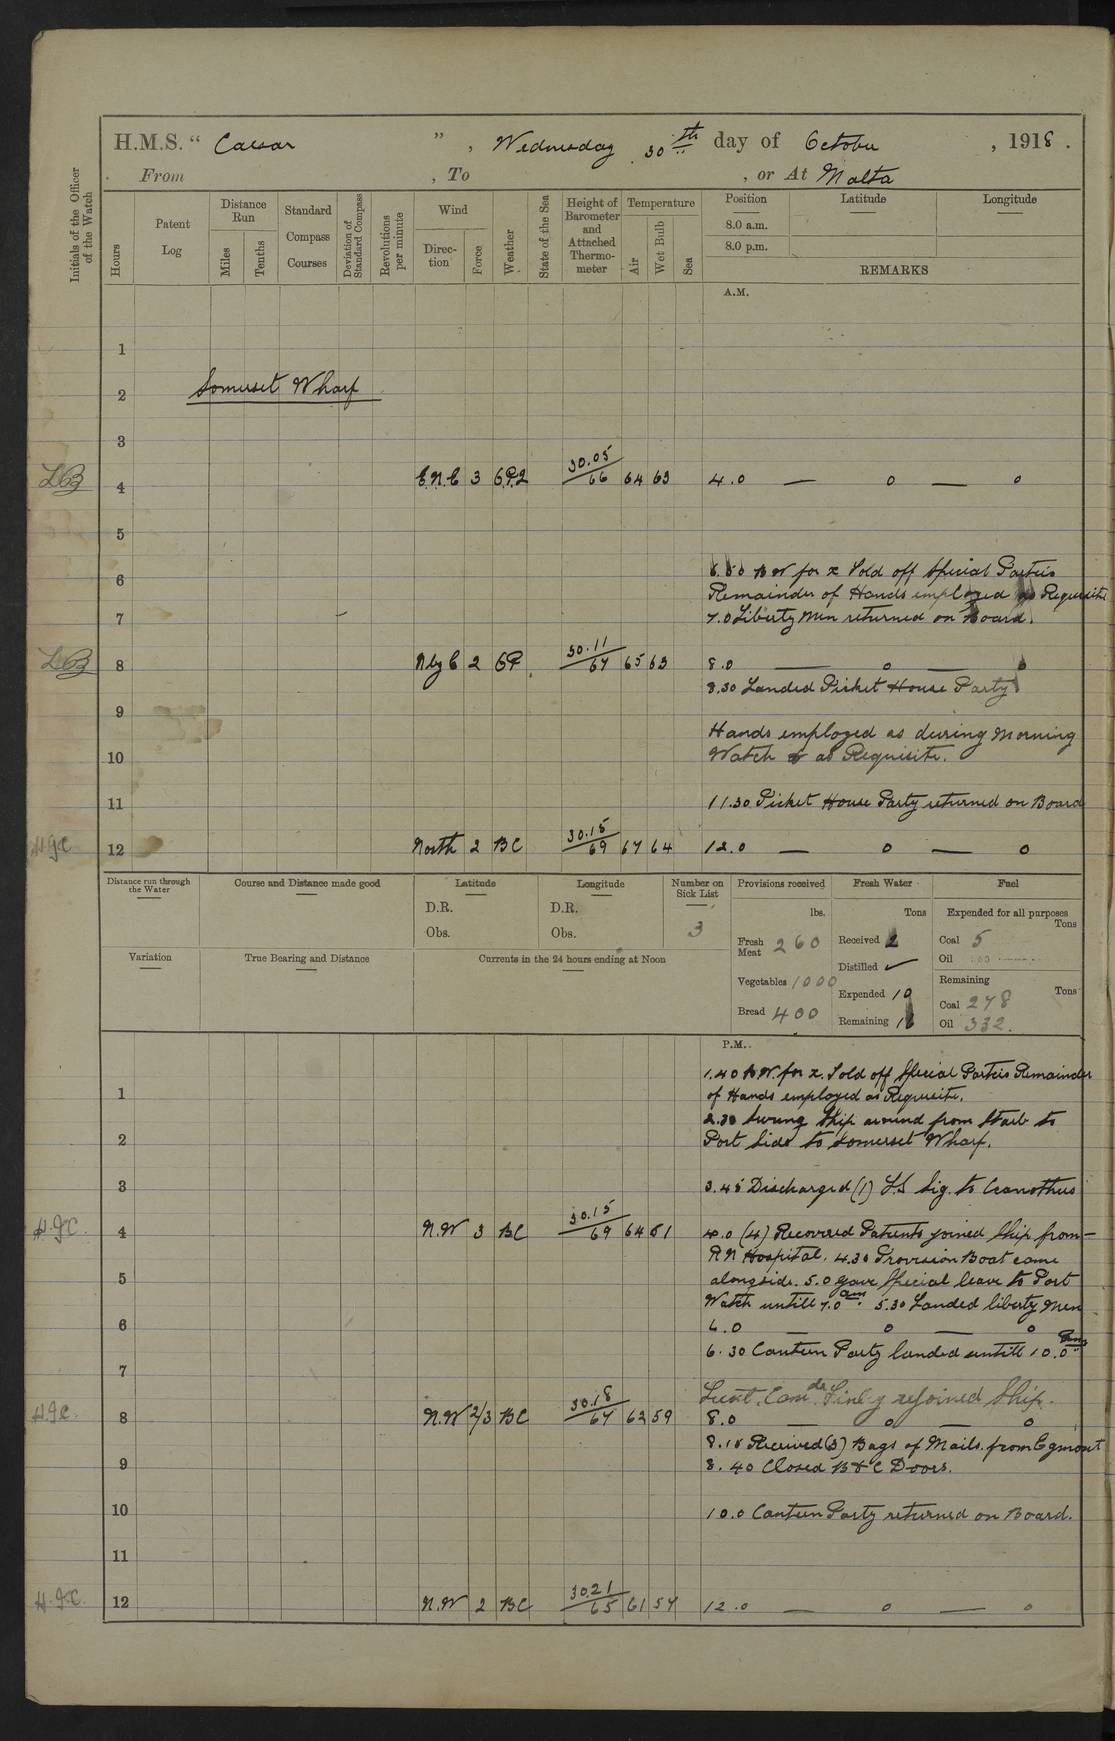 H.M.S. " Caesar ", Wednesday 30th day of October, 1918.
From , To , or At Malta
Initials of the Officer of the Watch
Hours
Patent Log
Distance Run
Miles
Tenths
Standard Compass Courses
Deviation of Standard Compass
Revolutions per minute
Wind
Direction
Force
Weather
State of the Sea
Height of Barometer and Attached Thermometer
Temperature
Air
Wet Bulb
Sea
Position Latitude Longitude
8.0 a.m.
8.0 p.m.
REMARKS
A.M.
1
Somerset Wharf
2
3
LB 4 E.N.E 3 30.05/66 64 63 4.0 — o — o
5
6 B W for x Told off Special Parties
Remainder of Hands employed as Requisite
7 7.0 Liberty Men returned on Board.
LB 8 N by E 2 30.11/67 65 63 8.0 — o — o
8.30 Landed Picket House Party
9
Hands employed as during Morning
10 Watch & as Requisite.
11 11.30 Picket House Party returned on Board
12 North 2 BC 30.15/69 67 64 12.0 — o — o
Distance run through the Water
Course and Distance made good
Latitude
D.R.
Obs.
Longitude
D.R.
Obs.
Number on Sick List
3
Provisions received
lbs.
Fresh Meat 260
Vegetables 1000
Bread 400
Fresh Water
Tons
Received
Distilled ✓
Expended 10
Remaining
Fuel
Expended for all purposes
Tons
Coal 5
Oil
Remaining
Tons
Coal 278
Oil 332.
Variation
True Bearing and Distance
Currents in the 24 hours ending at Noon
P.M.
1.40 B W. for x. Told off Special Parties Remainder
1 of Hands employed as Requisite.
2.30 Swung Ship around from Starb to
2 Port Side to Somerset Wharf.
3 3.45 Discharged (1) L.S Sig. to Ceanothus
H.G.C. 4 N.W 3 BC 30.15/69 64 61 4.0 (4) Recovered Patients joined Ship from
R N Hospital. 4.30 Provision Boat came
5 alongside. 5.0 gave Special leave to Port
Watch untill 7.0 am. 5.30 Landed liberty Men
6 6.0 — o — o
6.30 Canteen Party landed untill 10.0 pm
7
Lieut. Comdr. rejoined Ship.
H.G.C. 8 N.W 2/3 BC 30.18/67 62 59 8.0 — o — o
8.15 Received (3) Bags of Mails. from Egmont
9 8.40 Closed B & C Doors.
10 10.0 Canteen Party returned on Board.
11
H.G.C. 12 N.W 2 BC 30.21/65 61 57 12.0 — o — o